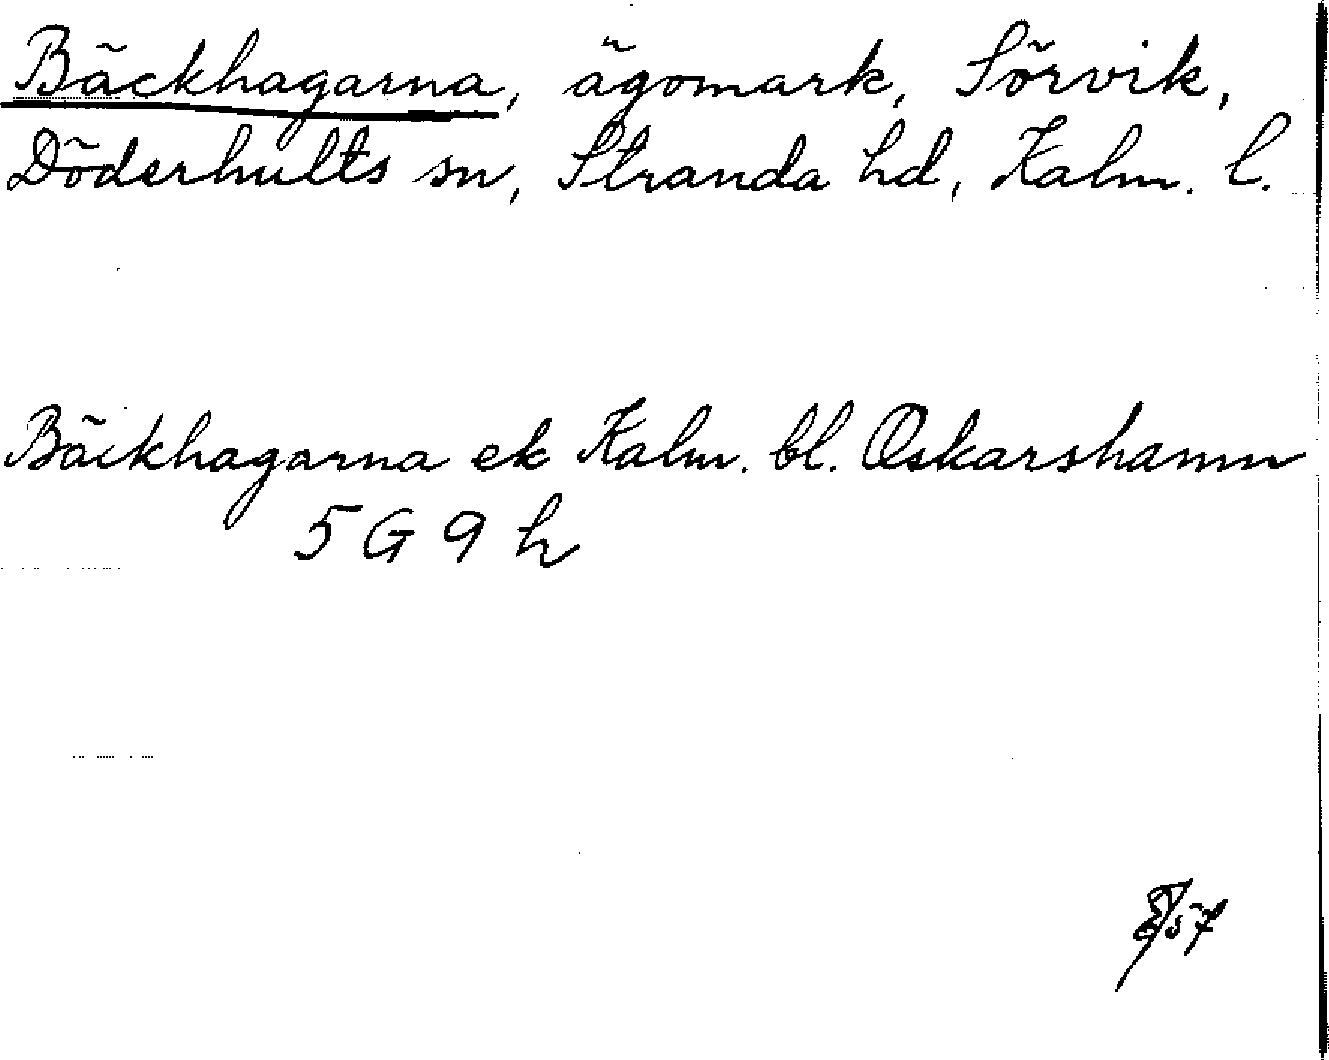 Bäckhagarna, ägomark, Sörvik,
Döderhults sn, Stranda hd, Kalm. l.
Bäckhagarna ek Kalm. bl. Oskarshamn
5 G 9 h
57